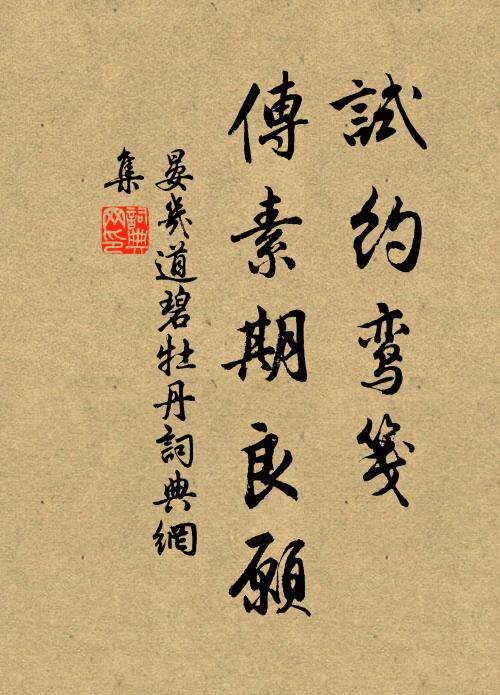 試約鸾箋
傳素期良願
晏幾道碧牡丹詞典網
集
詞典网印